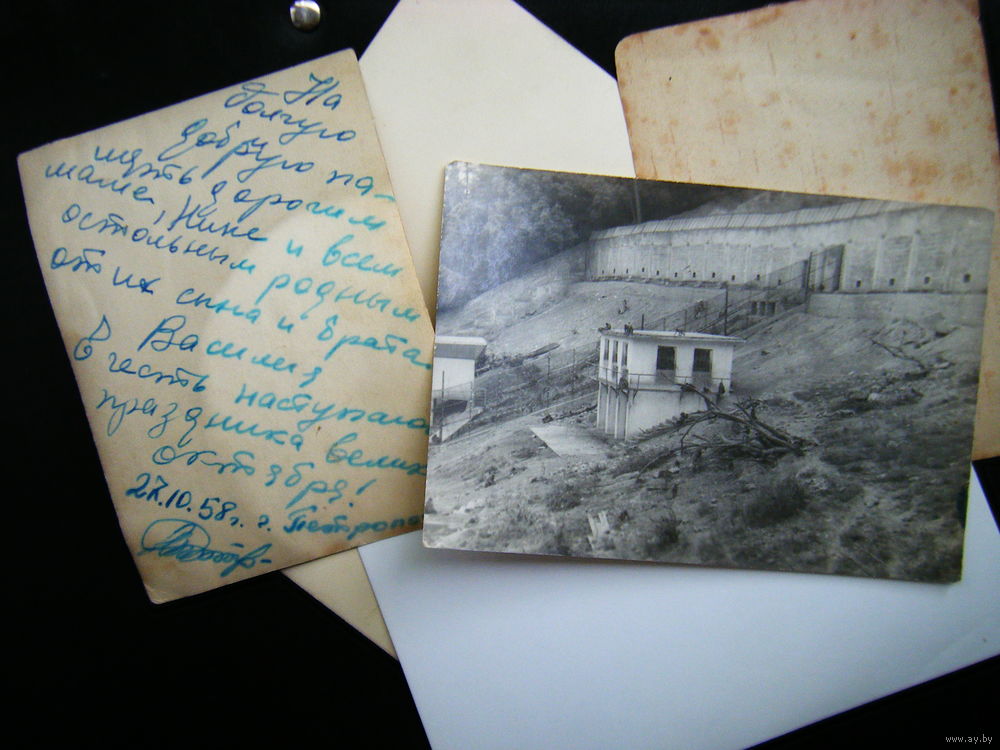 На
долгую
добрую па-
мять дорогим
маме, Нине и всем
остольным родным
от их сына и брата
Василия
В честь наступаю
праздника велик
октября!
27.10.58г. г. Петропа
www.ay.by